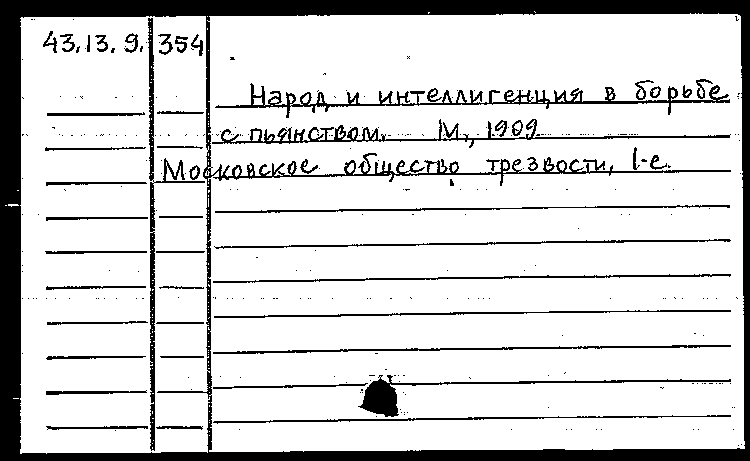 43.13.9. 354
Народ и интеллигенция в борьбе
с пьянством. М., 1909
Московское общество трезвости, 1-е.